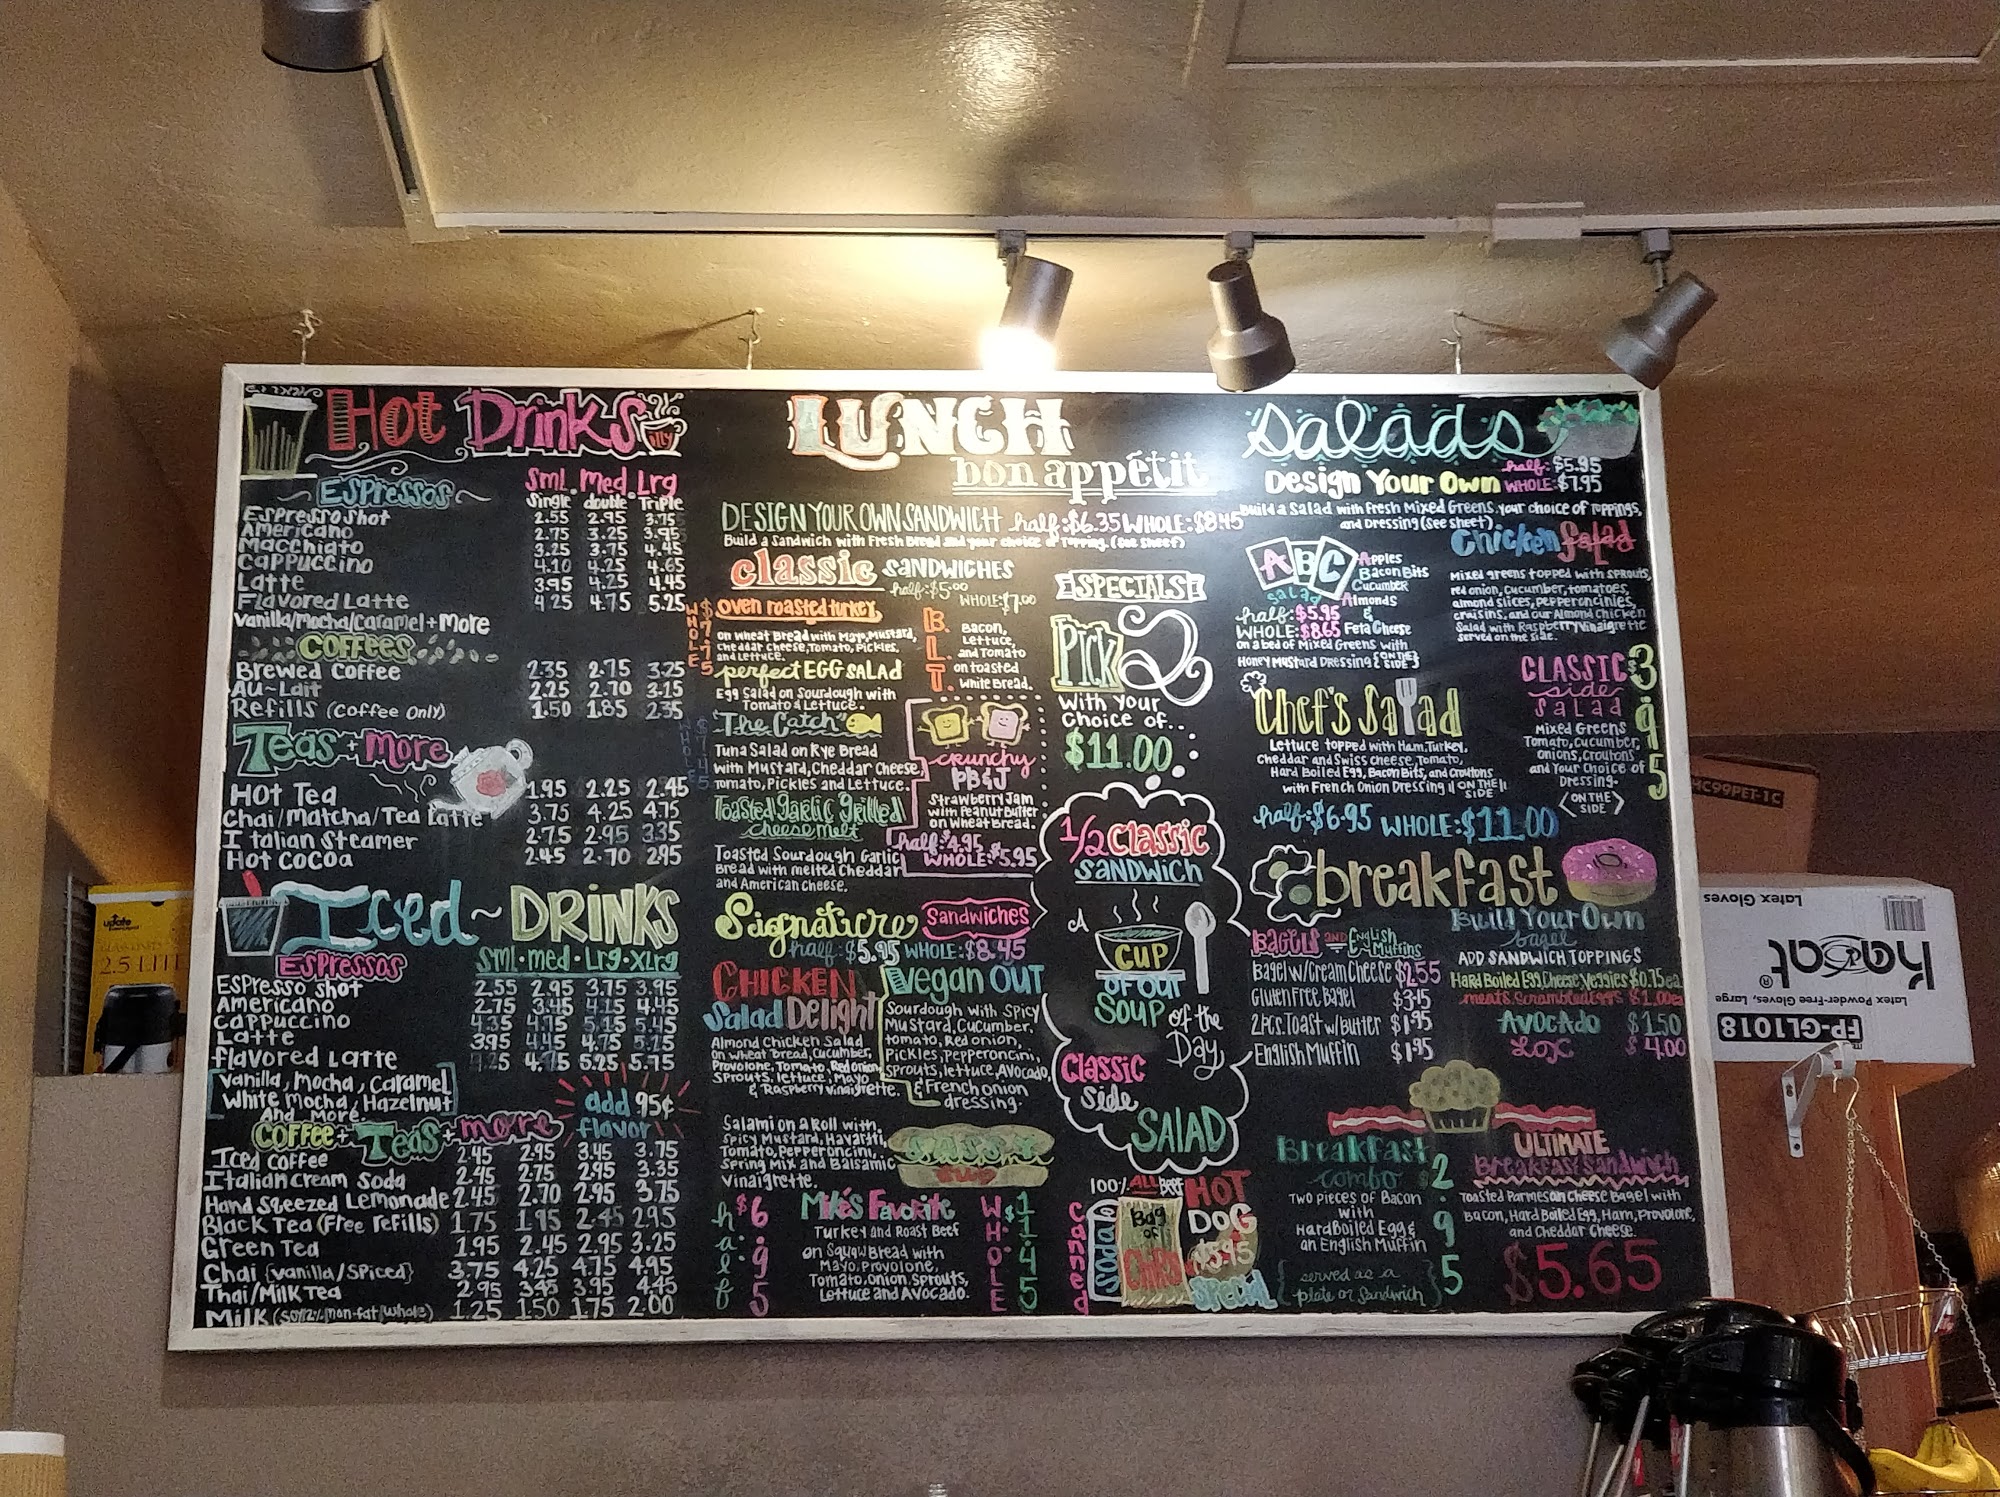 Hot Drinks
illy
Espressos
Sml. Med. Lrg
Single double Triple
Espresso shot 2.55 2.95 3.75
Americano 2.75 3.25 3.95
Macchiato 3.25 3.75 4.45
Cappuccino 4.10 4.25 4.65
Latte 3.95 4.25 4.45
Flavored Latte 4.25 4.75 5.25
Vanilla/Mocha/Caramel + More
Coffees
Brewed Coffee 2.35 2.75 3.25
Au-Lait 2.25 2.70 3.15
Refills (Coffee Only) 1.50 1.85 2.35
Teas + More
Hot Tea 1.95 2.25 2.45
Chai/Matcha/Tea Latte 3.75 4.25 4.75
Italian Steamer 2.75 2.95 3.35
Hot Cocoa 2.45 2.70 2.95
Iced ~ DRINKS
Espressos
Sml • med • Lrg • XLrg
Espresso shot 2.55 2.95 3.75 3.95
Americano 2.75 3.45 4.15 4.45
Cappuccino 4.35 4.75 5.15 5.45
Latte 3.95 4.45 4.75 5.25
flavored Latte 4.25 4.75 5.25 5.75
Vanilla, Mocha, Caramel
White Mocha, Hazelnut
And More
add 95¢
flavor
Coffee + Teas + more
Iced Coffee 2.45 2.95 3.45 3.75
Italian Cream Soda 2.45 2.75 2.95 3.35
Hand Sqeezed Lemonade 2.45 2.70 2.95 3.75
Black Tea (Free refills) 1.75 1.95 2.45 2.95
Green Tea 1.95 2.45 2.95 3.25
Chai {vanilla/spiced} 3.75 4.25 4.75 4.95
Thai/Milk Tea 2.95 3.45 3.95 4.45
Milk 1.25 1.50 1.75 2.00
LUNCH
bon appétit
DESIGN YOUR OWN SANDWICH half: $6.35 WHOLE: $8.45
Build a Sandwich with Fresh Bread and your choice of Topping. (See Sheet)
classic SANDWICHES
half: $5.00
WHOLE: $7.00
WHOLE $7.75
oven roasted turkey
on Wheat Bread with Mayo, Mustard,
Cheddar Cheese, Tomato, Pickles,
and Lettuce.
perfect EGG SALAD
Egg Salad on Sourdough with
Tomato & Lettuce.
"The Catch"
WHOLE $7.45
Tuna Salad on Rye Bread
with Mustard, Cheddar Cheese,
Tomato, Pickles and Lettuce.
Toasted Garlic Grilled
cheese melt
Toasted Sourdough Garlic
Bread with melted Cheddar
and American Cheese.
B.L.T.
Bacon,
Lettuce,
and Tomato
on toasted
White Bread.
crunchy
PB&J
Strawberry Jam
with Peanut Butter
on Wheat Bread.
half: $4.95
WHOLE: $5.95
Signature Sandwiches
half: $5.95 WHOLE: $8.45
CHICKEN
Salad Delight
Almond Chicken Salad
on Wheat Bread, Cucumber,
Provolone, Tomato, Red Onion,
Sprouts, lettuce, Mayo
& Raspberry Vinaigrette.
Vegan OUT
Sourdough with Spicy
Mustard, Cucumber,
Tomato, Red onion,
Pickles, Pepperoncini,
Sprouts, lettuce, Avocado,
& French onion
dressing.
Salami on a Roll with,
Spicy Mustard, Havarti,
Tomato, Pepperoncini,
Spring Mix and Balsamic
Vinaigrette.
half $6.95
Mike's Favorite
Turkey and Roast Beef
on Squaw Bread with
Mayo, Provolone,
Tomato, Onion, Sprouts,
Lettuce and Avocado.
WHOLE $11.45
SPECIALS
PICK 2
With your
Choice of...
$11.00
1/2 Classic
SANDWICH
A
CUP
OF OUR
SOUP of the
Day
Classic
Side
SALAD
100% ALL BEEF
HOT
DOG
$5.95
SPECIAL
Bag
of
CHIPS
Canned
Soda
Salads
Design Your Own half: $5.95
WHOLE: $7.95
Build a Salad with Fresh Mixed Greens, your choice of Toppings,
and Dressing (See sheet).
ABC
Salad
Apples
Bacon Bits
Cucumber
Almonds
&
Feta Cheese
half: $5.95
WHOLE: $8.65
on a bed of Mixed Greens with
Honey Mustard Dressing {ON THE SIDE}
Chicken Salad
Mixed greens topped with sprouts,
red onion, cucumber, tomatoes,
almond slices, pepperoncinies,
craisins, and our Almond Chicken
Salad with Raspberry Vinaigrette
served on the side.
Chef's Salad
Lettuce topped with Ham, Turkey,
Cheddar and Swiss cheese, Tomato,
Hard Boiled Egg, Bacon Bits, and croutons
with French Onion Dressing ON THE SIDE
half: $6.95 WHOLE: $11.00
CLASSIC
side
SALAD
$3.95
Mixed Greens
Tomato, Cucumber,
Onions, Croutons
and Your Choice of
Dressing.
ON THE
SIDE
breakfast
BAGELS AND English Muffins
Bagel w/Cream Cheese $2.55
Gluten Free Bagel $3.45
2 pcs. Toast w/Butter $1.95
English Muffin $1.95
Build Your Own
bagel
ADD SANDWICH TOPPINGS
Hard Boiled Egg, Cheese, Veggies $0.75 ea
meats, Scrambled Eggs $1.00 ea
AVOCADO $1.50
LOX $4.00
Breakfast
combo $2.95
TWO pieces of Bacon
with
Hard Boiled Egg &
an English Muffin
{served as a
plate or Sandwich}
ULTIMATE
Breakfast Sandwich
Toasted Parmesan Cheese Bagel with
Bacon, Hard Boiled Egg, Ham, Provolone,
and Cheddar Cheese.
$5.65
update
2.5 LITE
HC99PET-1C
Latex Gloves
KarSat®
Latex Powder-Free Gloves, Large
FP-GL1018